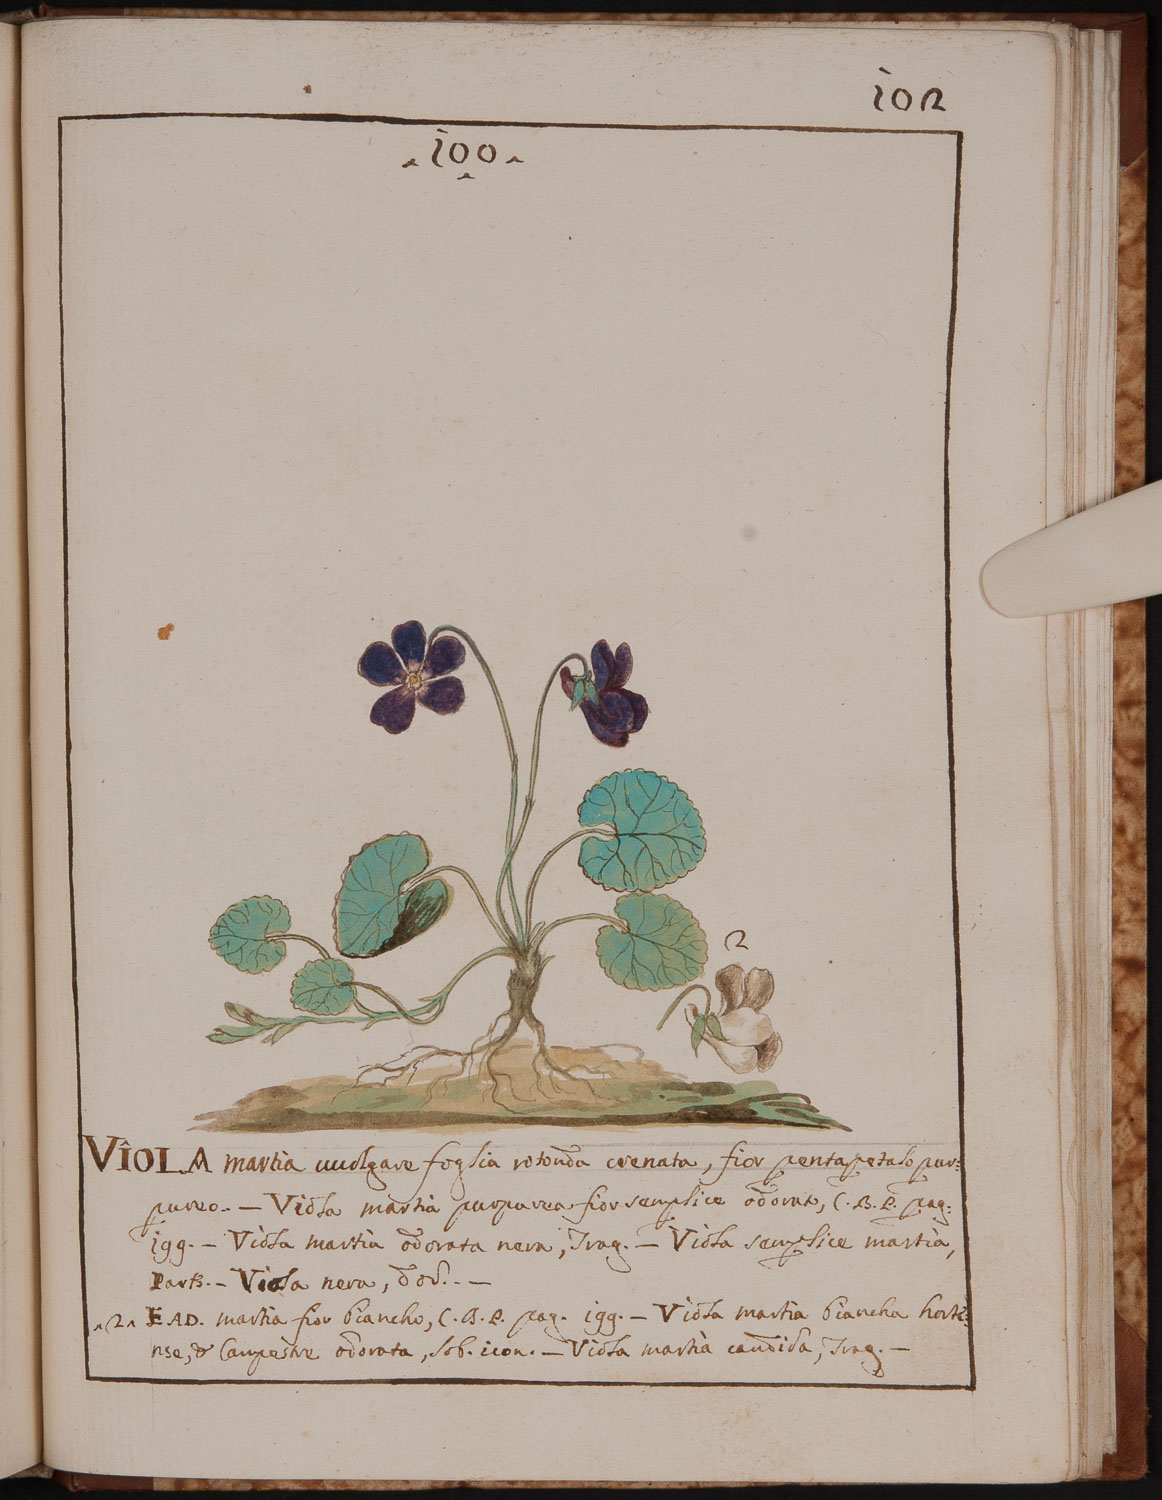 102
100
2
VIOLA martia uuolgare foglia rotonda crenata, fior pentapetalo pur=
pureo. - Viola martia purpurea fior semplice odorat, C. B. P. pag:
199. - Viola martia odorata nera, Trag. - Viola semplice martia,
Park. - Viola nera, dod. -
2 EAD. martia fior biancho, C. B. P. pag. 199. - Viola martia biancha horte=
nse, & Campestre odorata, Lob. icon. - Viola martia candida, Trag. -